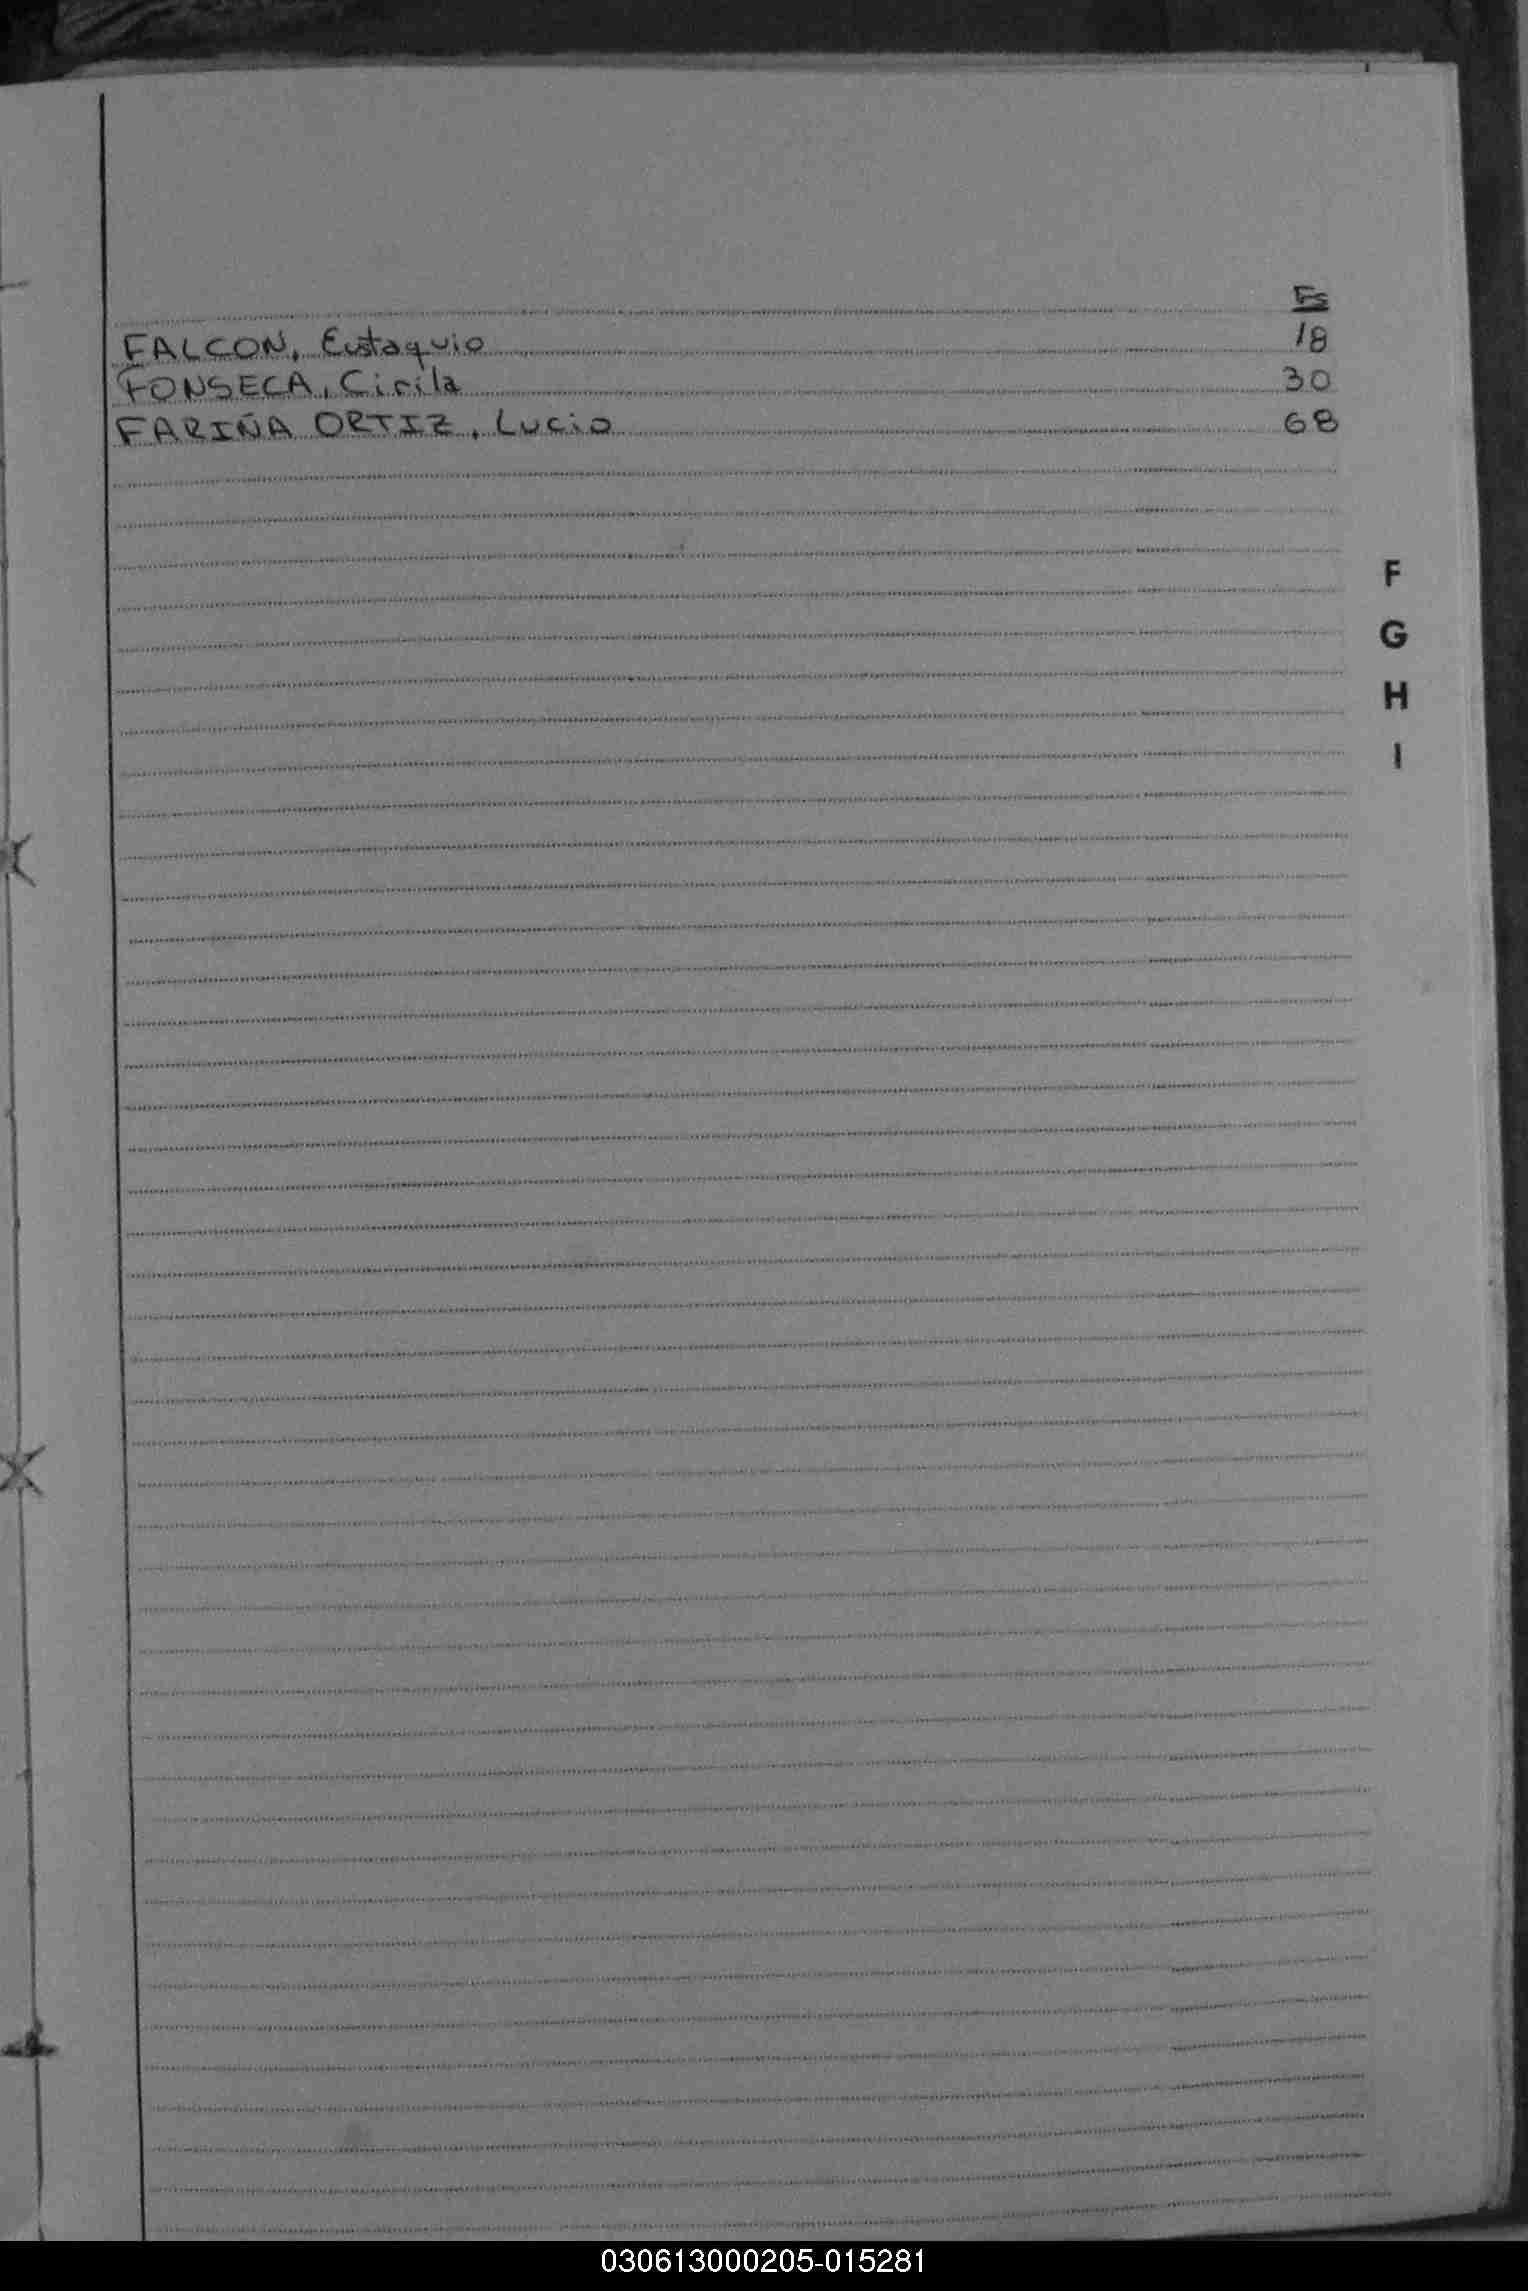 Fs
FALCON, Eustaquio 18
FONSECA, Cirila 30
FARIÑA ORTIZ, Lucio 68
F
G
H
I
030613000205-015281